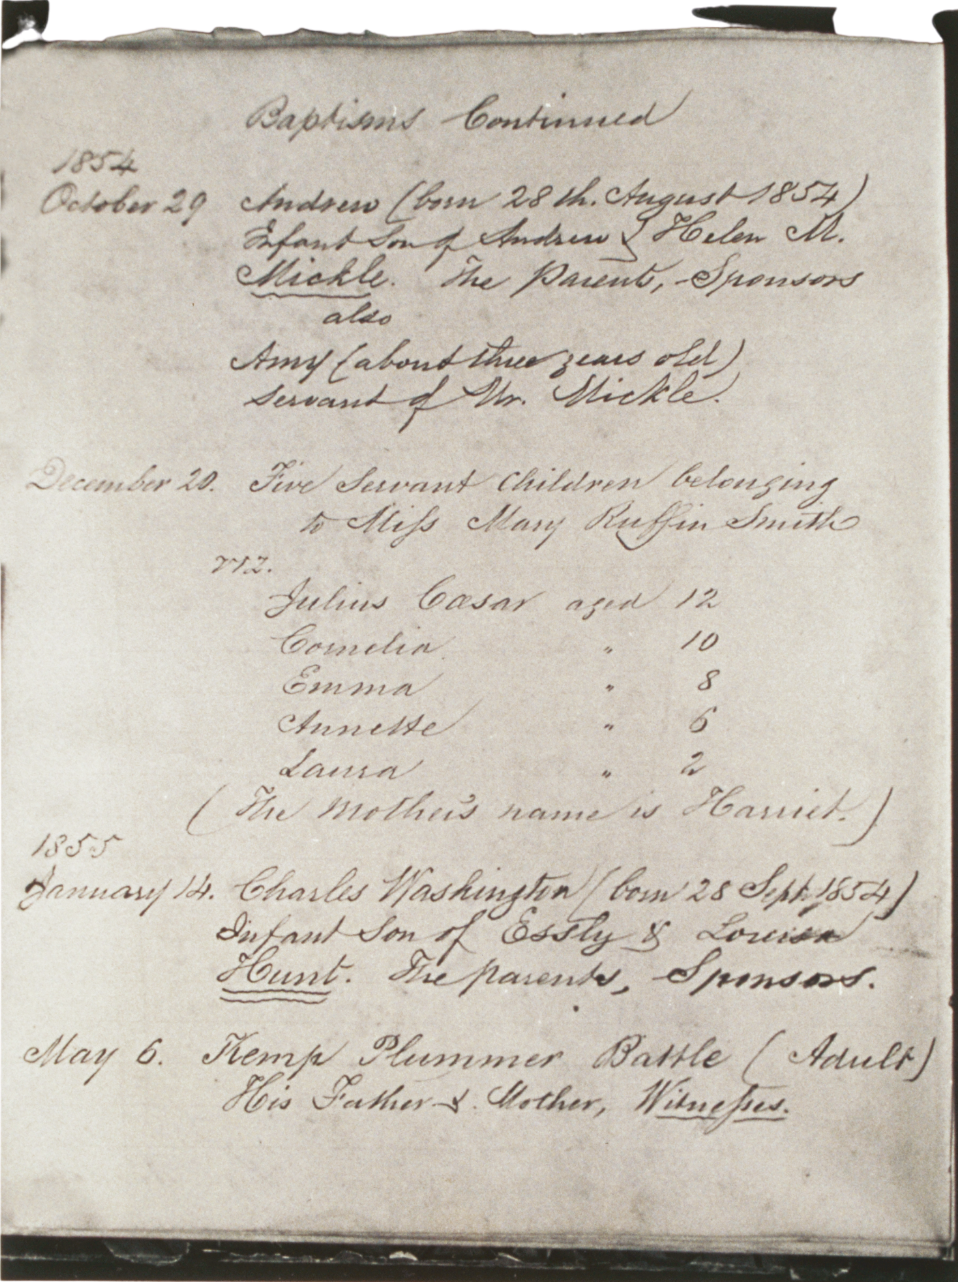 Baptisms Continued
1854
October 29 Andrew (born 28th. August 1854)
Infant Son of Andrew & Helen M.
Mickle. The Parents, - Sponsors
also
Amy (about three years old)
servant of Mr. Mickle.
December 20. Five Servant Children belonging
to Miss Mary Ruffin Smith
viz.
Julius Cæsar aged 12
Cornelia " 10
Emma " 8
Annette " 6
Laura " 2
(The Mother's name is Harriet.)
1855
January 14. Charles Washington (born 28 Sept. 1854)
Infant Son of Essly & Louisa
Hunt. The parents, - Sponsors.
May 6. Kemp Plummer Battle (Adult)
His Father & Mother, Witnesses.